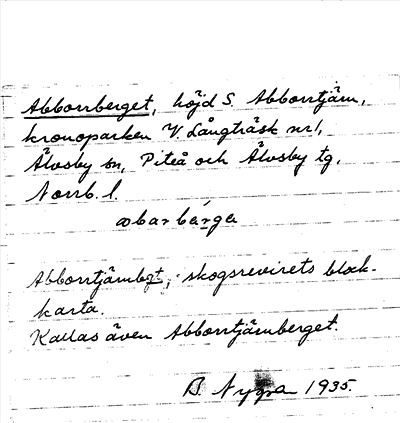 Abborrberget, höjd S. Abborrtjärn,
kronoparken V. Långträsk nr 1,
Älvsby sn, Piteå och Älvsby tg,
Norrb. l.
abarbärga
Abborrtjärnbgt, skogsrevirets block-
karta.
Kallas även Abborrtjärnberget.
B. 1935.